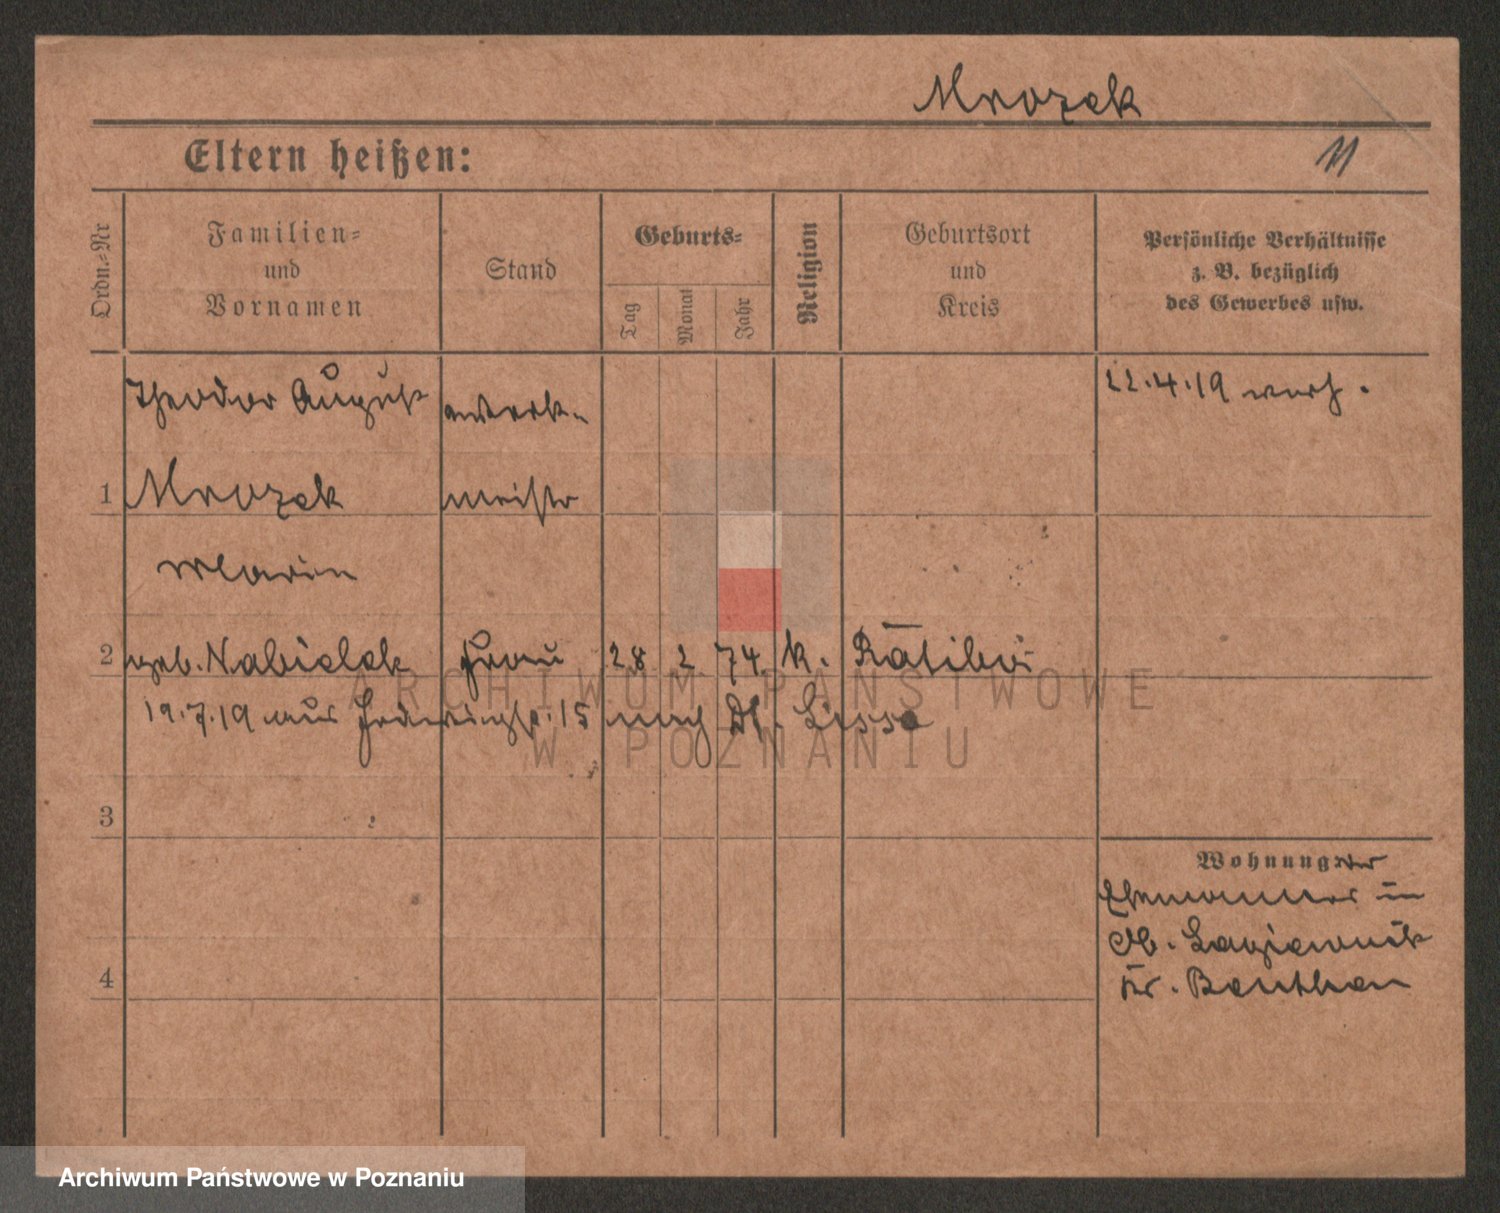 Mrozek
Eltern heißen:
11
Ordn.-Nr
Familien-
und
Vornamen
Stand
Geburts-
Tag
Monat
Jahr
Religion
Geburtsort
und
Kreis
Persönliche Verhältnisse
z. B. bezüglich
des Gewerbes usw.
Theodor August
werk-
22.4.19
1 Mrozek meister
Maria
2 geb. Nabielek Frau 28 2 74 k. Ratibor
19.7.19 aus 15 nach Dt. Lissa
3
Wohnung der
Ehemannes in
Ob. Lagiewnik
Kr. Beuthen
4
ARCHIWUM PAŃSTWOWE
W POZNANIU
Archiwum Państwowe w Poznaniu